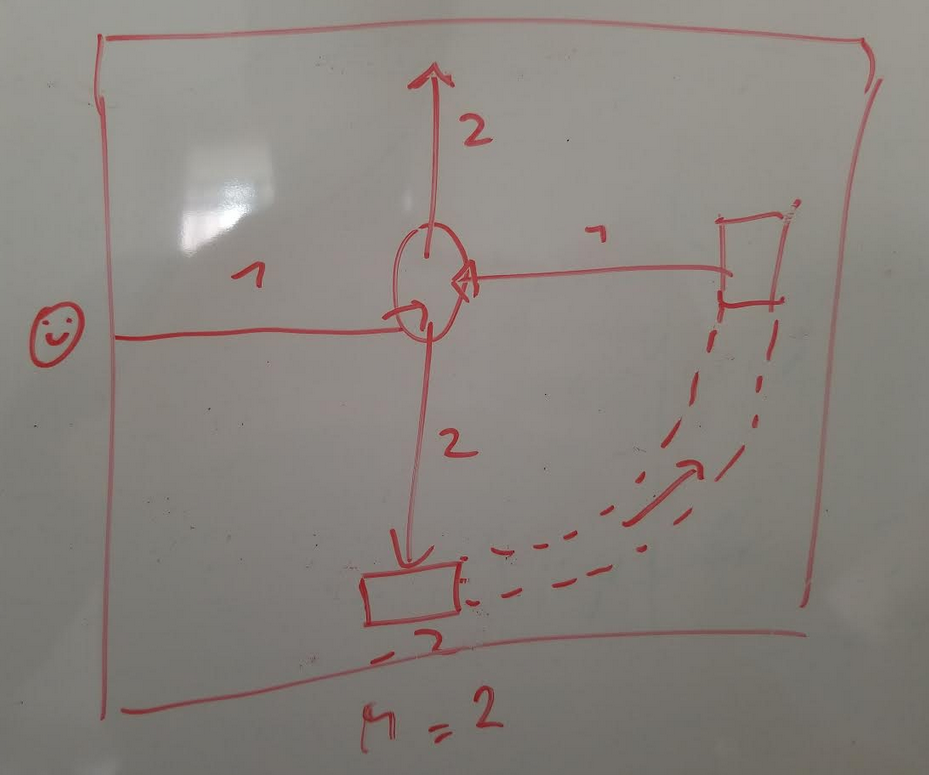 2
1
1
2
- 2
M = 2